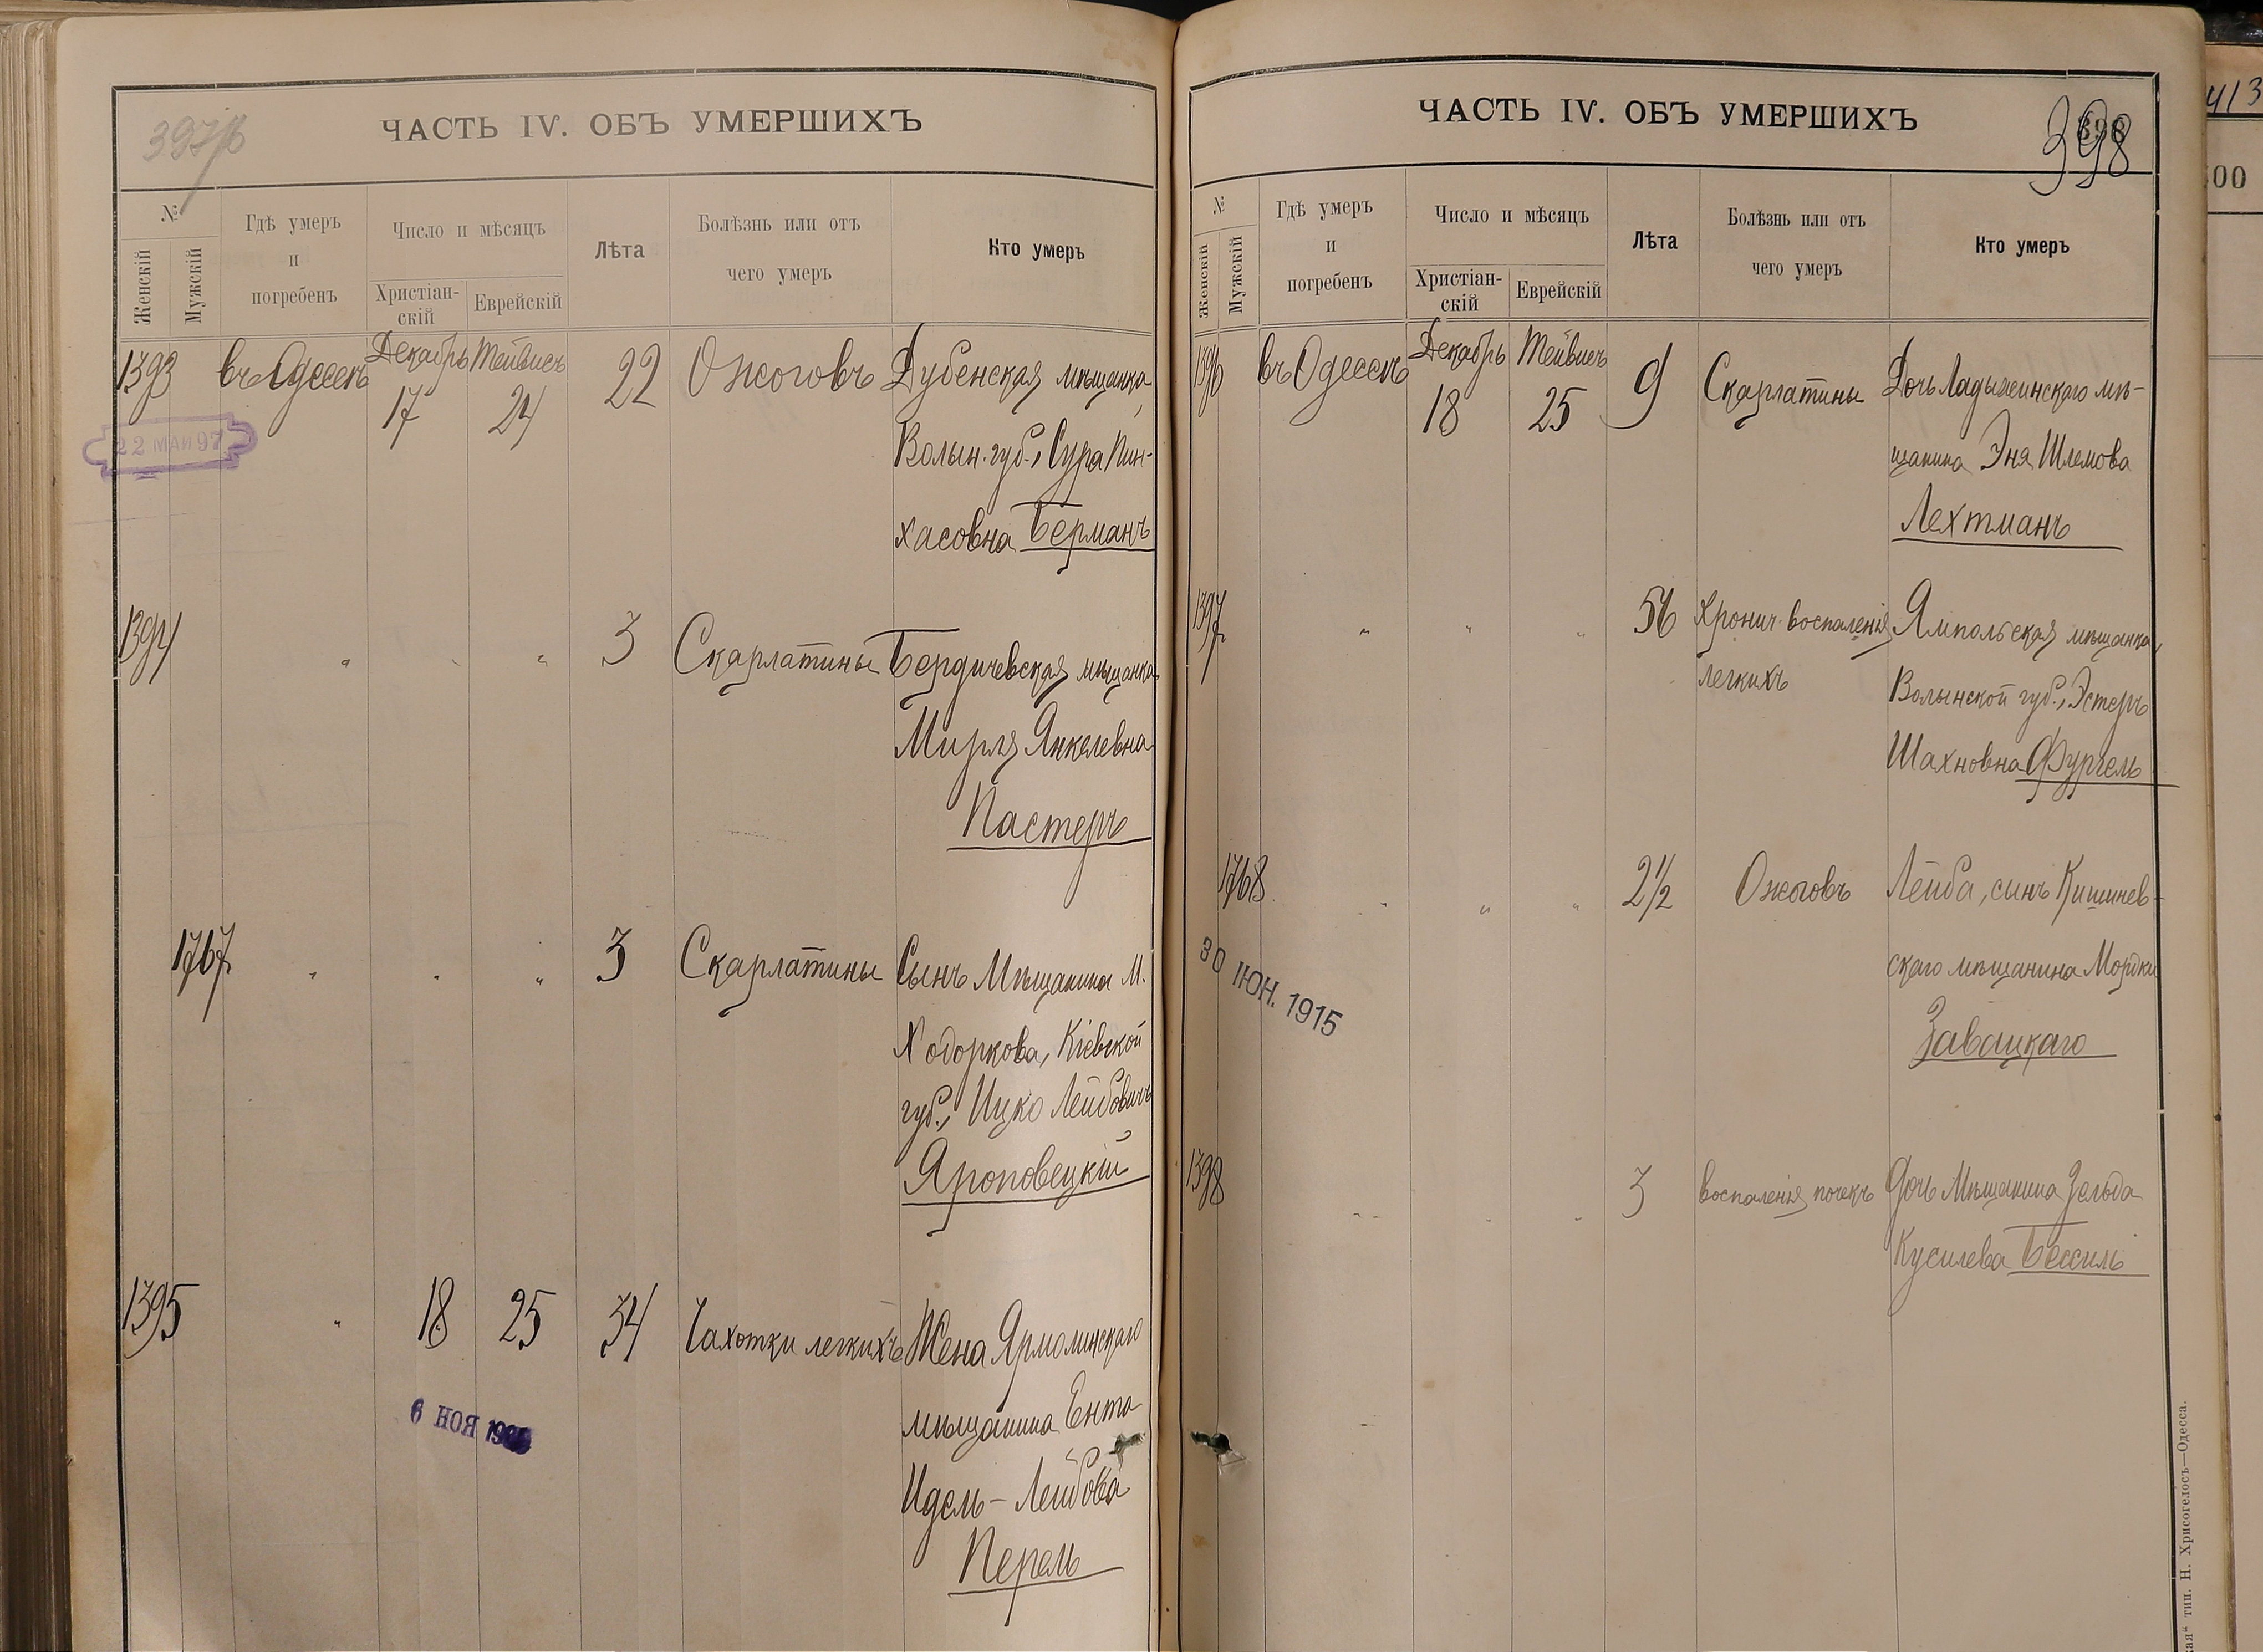 397/б
ЧАСТЬ IV. ОБЪ УМЕРШИХЪ
№
Женскій
Мужскій
Гдѣ умеръ
и
погребенъ
Число и мѣсяцъ
Христіан-
скій
Еврейскій
Лѣта
Болѣзнь или отъ
чего умеръ
Кто умеръ
1393 въ Одессѣ Декабрь 17 Тейвисъ 24 22 Ожоговъ Дубенская мѣщанка,
Волын. губ., Сура Пин-
хасовна Берманъ
22 МАЙ 97
1394 " " " 3 Скарлатины Бердичевская мѣщанка
Мирля Янкелевна
Пастеръ
1767 " " " 3 Скарлатины Сынъ Мѣщанина м.
Ходоркова, Кіевской
губ., Ицко Лейбовичъ
Яроповецкій
1395 " 18 25 34 Чахотки легкихъ Жена Ярмолинскаго
мѣщанина Ента
Идель-Лейбова
Перель
6 НОЯ
ЧАСТЬ IV. ОБЪ УМЕРШИХЪ
398
№
Женскій
Мужскій
Гдѣ умеръ
и
погребенъ
Число и мѣсяцъ
Христіан-
скій
Еврейскій
Лѣта
Болѣзнь или отъ
чего умеръ
Кто умеръ
1396 въ Одессѣ Декабрь 18 Тейвисъ 25 9 Скарлатины Дочь Ладыжинскаго мѣ-
щанина Эня Шлемова
Лехтманъ
1397 " " " 56 Хронич. воспаленія Ямпольская мѣщанка,
легкихъ Волынской губ., Эстеръ
Шахновна Фургель
1768 " " " 2 1/2 Ожоговъ Лейба, сынъ Кишинев-
скаго мѣщанина Мордки
Завацкаго
30 ІЮН. 1915
1398 " " " 3 воспаленія почекъ Дочь Мѣщанина Зельда
Кусилева Бессиль
тип. Н. Хрисогелосъ—Одесса.
413
00